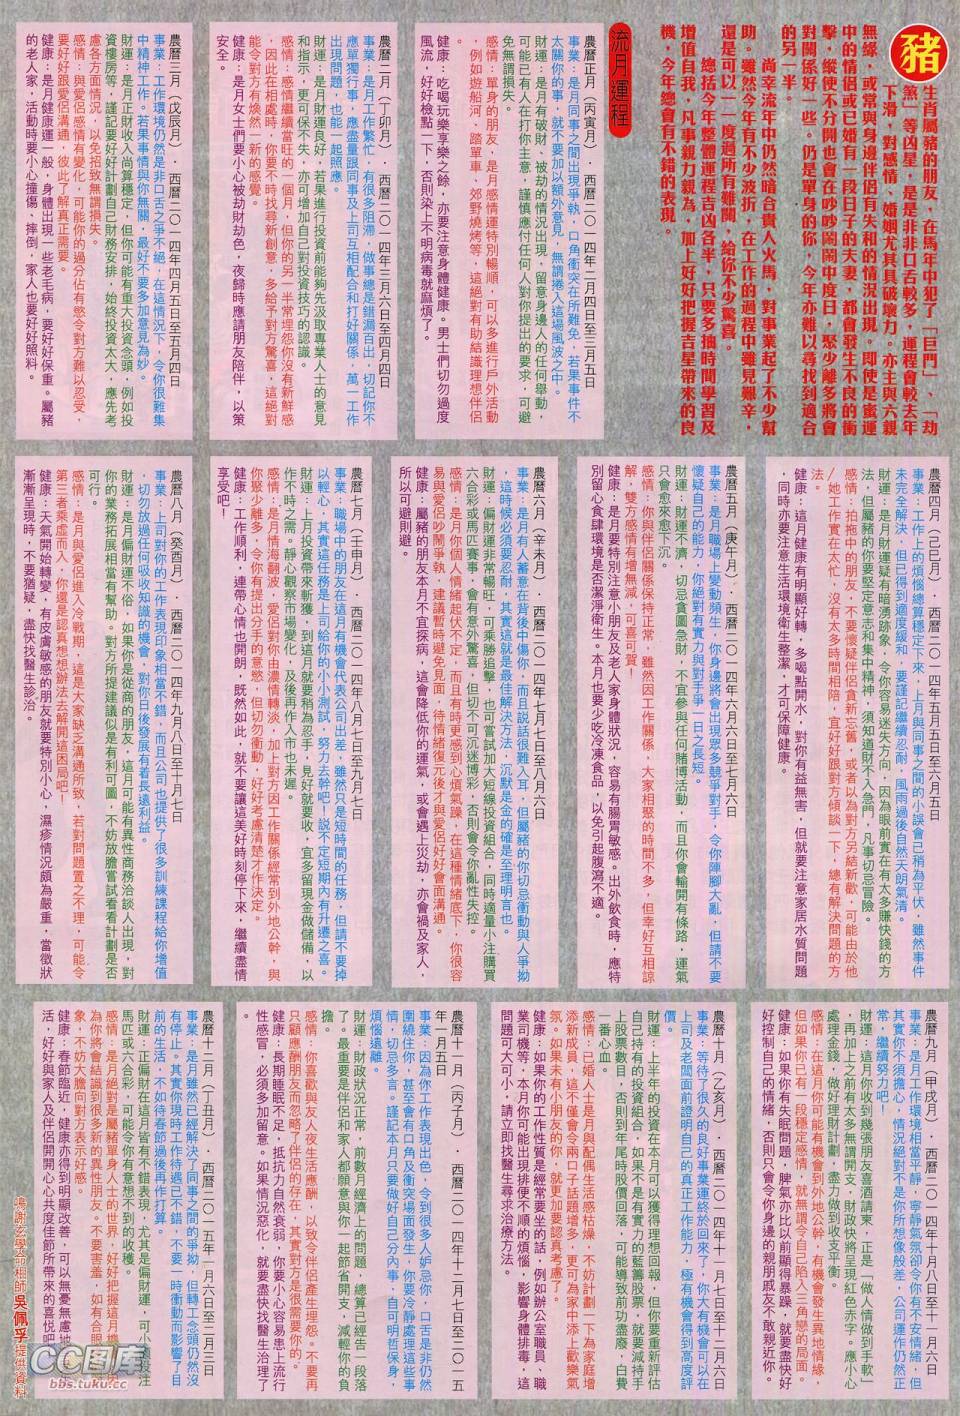 豬
生肖屬豬的朋友，在馬年中犯了「巨門」、「劫
煞」等凶星，是是非非口舌較多，運程會較去年
下滑，對感情、婚姻尤其具破壞力。亦主與六親
無緣，或常與身邊伴侶有失和的情況出現。即使是蜜運
中的情侶或已婚有一段日子的夫妻，都會發生不良的衝
擊，縱使不分開也會在吵吵鬧鬧中度日，聚少離多將會
對關係好一些。仍是單身的你，今年亦難以尋找到適合
的另一半。
尚幸流年中仍然暗合貴人火馬，對事業起了不少幫
助。雖然今年有不少波折，在工作的過程中雖見艱辛，
還是可以一一度過所有難關，給你不少驚喜。
總括今年整體運程吉凶各半，只要多抽時間學習及
增值自我，凡事親力親為，加上好好把握吉星帶來的良
機，今年總會有不錯的表現。
流月運程
農曆正月（丙寅月）．西曆二○一四年二月四日至三月五日
事業：是月同事之間出現爭執，口角衝突在所難免，若果事件不
太關你的事，就不要加以額外意見，無謂捲入這場風波之中。
財運：是月有破財、被劫的情況出現，留意身邊人的任何舉動，
可能已有人在打你主意，謹慎應付任何人對你提出的要求，可避
免無謂損失。
感情：單身的朋友，是月感情運特別暢順，可以多進行戶外活動
，例如遊船河、踏單車、郊野燒烤等，這絕對有助結識理想伴侶
。
健康：吃喝玩樂享樂之餘，亦要注意身體健康。男士們切勿過度
風流，好好檢點一下，否則染上不明病毒就麻煩了。
農曆二月（丁卯月）．西曆二○一四年三月六日至四月四日
事業：是月工作繁忙，有很多阻滯，做事總是錯漏百出，切記你不
應單獨行事，應盡量跟同事及上司互相配合和打好關係，萬一工作
出現問題，也能一起照應。
財運：是月財運良好，若果進行投資前能夠先汲取專業人士的意見
和指示，更可保不失，亦可增加自己對投資技巧的認識。
感情：感情繼續當旺的一個月，但你的另一半常埋怨你沒有新鮮感
，因此在相處時，你要不時找尋新創意，多給予對方驚喜，這絕對
能令對方有煥然一新的感覺。
健康：是月女士們要小心被劫財劫色，夜歸時應請朋友陪伴，以策
安全。
農曆三月（戊辰月）．西曆二○一四年四月五日至五月四日
事業：工作環境仍然是非口舌之爭不絕，在這情況下，令你很難集
中精神工作。若果事情與你無關，最好不要多加意見為妙。
財運：是月正財收入尚算穩定，但你可能有重大投資念頭，例如投
資樓房等，謹記要好好計劃自己財務安排，始終投資太大，應先考
慮各方面情況，以免招致無謂損失。
感情：與愛侶感情有變化，可能你的過分佔有慾令對方難以忍受，
要好好跟愛侶溝通，彼此了解真正需要。
健康：是月健康運一般，身體出現一些老毛病，要好好保重。屬豬
的老人家，活動時要小心撞傷、摔倒，家人也要好好照料。
農曆四月（己巳月）．西曆二○一四年五月五日至六月五日
事業：工作上的煩惱總算穩定下來，上月與同事之間的小誤會已稍為平伏，雖然事件
未完全解決，但已得到適度緩和，要謹記繼續忍耐，風雨過後自然天朗氣清。
財運：是月財運疑有暗湧跡象，令你容易迷失方向，因為眼前實在有太多賺快錢的方
法，但屬豬的你要堅定意志和集中精神，須知道財不入急門，凡事切忌冒險。
感情：拍拖中的朋友，不要懷疑伴侶貪新忘舊，或者以為對方另結新歡，可能由於他
／她工作實在太忙，沒有太多時間相陪，宜好好跟對方傾談一下，總有解決問題的方
法。
健康：這月健康有明顯好轉，多喝點開水，對你有益無害，但就要注意家居水質問題
，同時亦要注意生活環境衛生整潔，才可保障健康。
農曆五月（庚午月）．西曆二○一四年六月六日至七月六日
事業：是月職場上變動頻生，你身邊將會出現眾多競爭對手，令你陣腳大亂，但請不要
懷疑自己的能力，你絕對有實力與對手爭一日之長短。
財運：財運不濟，切忌貪圖急財，不宜參與任何賭博活動，而且你會輸開有條路，運氣
只會愈來愈下沉。
感情：你與伴侶關係保持正常，雖然因工作關係，大家相聚的時間不多，但幸好互相諒
解，雙方感情有增無減，可喜可賀！
健康：是月要特別注意小朋友及老人家身體狀況，容易有腸胃敏感。出外飲食時，應特
別留心食肆環境是否潔淨衛生。本月也要少吃冷凍食品，以免引起腹瀉不適。
農曆六月（辛未月）．西曆二○一四年七月七日至八月六日
事業：是月有人蓄意在背後中傷你，而且說話很難入耳，但屬豬的你切忌衝動與人爭拗
，這時候必須要忍耐，其實這就是最佳解決方法，沉默是金的確是至理明言也。
財運：偏財運非常暢旺，可乘勝追擊，也可嘗試加大短線投資組合，同時適量小注購買
六合彩或馬匹賽事，會有意外驚喜，但切不可沉迷博彩，否則會令你亂性失控。
感情：是月你個人情緒起伏不定，而且有時更感到心煩氣躁，在這種情緒底下，你很容
易與愛侶吵鬧爭執，建議暫時避免見面，待情緒復元後才與愛侶好好會面溝通。
健康：屬豬的朋友本月不宜探病，這會降低你的運氣，或會遇上災劫，亦會禍及家人，
所以可避則避。
農曆七月（壬申月）．西曆二○一四年八月七日至九月七日
事業：職場中的朋友在這月有機會代表公司出差，雖然只是短時間的任務，但請不要掉
以輕心，其實這任務是上司給你的小小測試，努力去幹吧！說不定短期內有升遷之喜。
財運：上月投資帶來斬獲，到這月就要稍為忍手，見好就要收，宜多留現金做儲備，以
作不時之需。靜心觀察市場變化，及後再作入市也未遲。
感情：是月感情海翻波，愛侶對你由濃情轉淡，加上對方因工作關係經常到外地公幹，與
你聚少離多，令你有提出分手的意慾，但切勿衝動，好好考慮清楚才作決定。
健康：工作順利，連帶心情也開朗，既然如此，就不要讓這美好時刻停下來，繼續盡情
享受吧！
農曆八月（癸酉月）．西曆二○一四年九月八日至十月七日
事業：上司對你的工作表現印象相當不錯，而且公司也提供了很多訓練課程給你增值
，切勿放過任何吸收知識的機會，對你日後發展有着長遠利益。
財運：是月偏財運不俗，如果你是從商的朋友，這月可能有異性商務洽談人出現，對
你的業務拓展相當有幫助。對方所提建議似是有利可圖，不妨放膽嘗試看看計劃是否
可行。
感情：是月與愛侶進入冷戰期，這是大家缺乏溝通所致，若對問題置之不理，可能令
第三者乘虛而入，你還是認真想想辦法去解開這困局吧！
健康：天氣開始轉變，有皮膚敏感的朋友就要特別小心，濕疹情況頗為嚴重，當徵狀
漸漸呈現時，不要猶疑，盡快找醫生診治。
農曆九月（甲戌月）．西曆二○一四年十月八日至十一月六日
事業：是月工作環境相當平靜，寧靜氣氛卻令你有不安情緒，但
其實你不須擔心，情況絕對不是你所想像般差，公司運作仍然正
常，繼續努力吧！
財運：這月你收到幾張朋友喜酒請柬，正是「做人情做到手軟」
，再加上之前有太多無謂開支，財政快將呈現紅色赤字。應小心
處理金錢，做好理財計劃，盡力做到收支平衡。
感情：在這月你可能有機會到外地公幹，有機會發生異地情緣，
但如果你已有一段穩定感情，就無謂令自己陷入三角戀的局面。
健康：如果你有失眠問題，脾氣亦比以前顯得暴躁，就要盡快好
好控制自己的情緒，否則只會令你身邊的親朋戚友不敢親近你。
農曆十月（乙亥月）．西曆二○一四年十一月七日至十二月六日
事業：等待了很久的良好事業運終於回來了，你大有機會可以在
上司及老闆面前證明自己的真正工作能力，極有機會得到高度評
價。
財運：上半年的投資在本月可以獲得理想回報，但你要重新評估
自己持有的投資組合，如果不是有實力的藍籌股票，就要減持手
上股票數目，否則到年尾時股價回落，可能導致前功盡廢，白費
一番心血。
感情：已婚人士是月與配偶生活感枯燥，不妨計劃一下為家庭增
添新成員，這不僅會令兩口子話題增多，更可為家中添上歡樂氣
氛。如果未有小朋友的你，就更加要認真考慮了。
健康：如果你的工作性質是經常要坐的話，例如辦公室職員、職
業司機等，本月你可能出現排便不順的情況，影響身體排毒，這
問題可大可小，請立即找醫生尋求治療方法。
農曆十一月（丙子月）．西曆二○一四年十二月七日至二○一五
年一月五日
事業：因為你工作表現出色，令到很多人妒忌你，口舌是非仍然
圍繞住你，甚至會有口角及衝突場面發生，你要冷靜處理這些事
情，切忌多言。謹記本月只要做好自己分內事，自可明哲保身，
煩惱遠離。
財運：財政狀況正常，前數月經濟上的問題，總算已經告一段落
了。最重要是伴侶和家人都願意與你一起節省開支，減輕你的負
擔。
感情：你喜歡與友人夜夜生活應酬，以致令伴侶產生埋怨。不要再
只顧應酬朋友而忽略了伴侶的存在，其實對方是很需要你的。
健康：長期睡眠不足，抵抗力自然衰弱，你要小心容易患上流行
性感冒，必須多加留意。如果情況惡化，就要盡快找醫生治理了
農曆十二月（丁丑月）．西曆二○一五年一月六日至二月三日
事業：是月雖然已經解決了同事之間的爭拗，但轉工念頭仍然沒
有停止。其實你現時工作待遇已不錯，不要一時衝動而影響了目
前的生活，不如待春節過後再作打算。
財運：正偏財在這月皆有不錯表現，尤其是偏財運，可小
馬匹或六合彩，可能令你有意想不到的收穫。
感情：是月絕對是屬豬單身人士的世界，好好把握這月
為你將會結識到很多新的異性朋友。不要害羞，如有合眼
象，不妨大膽向對方表示好感。
健康：春節臨近，健康亦得到明顯改善，可以無憂無慮地
活，好好與家人及伴侶開開心心共度佳節所帶來的喜悅吧
鳴謝玄學命相師吳佩孚提供資料
CC图库
bbs.tuku.cc